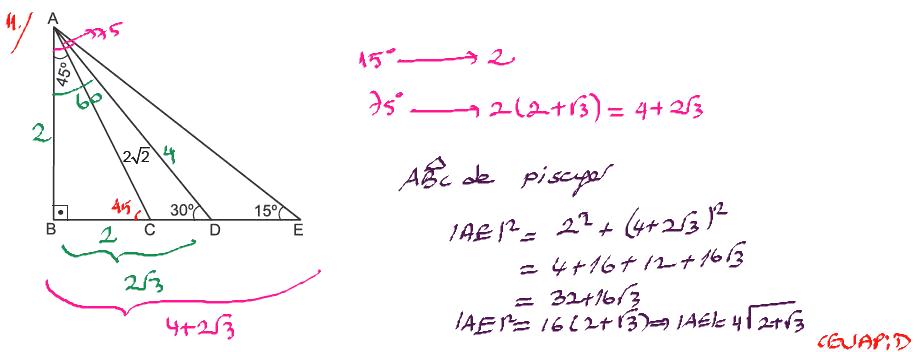 11.)
A
75
45°
60
2
2√2
4
45
30°
15°
B
C
D
E
2
2√3
4+2√3
15° → 2
75° → 2(2+√3) = 4+2√3
ABC de pisagor
|AE|² = 2² + (4+2√3)²
= 4+16+12+16√3
= 32+16√3
|AE|² = 16(2+√3) ⇒ |AE| = 4√2+√3
CEVAP: D